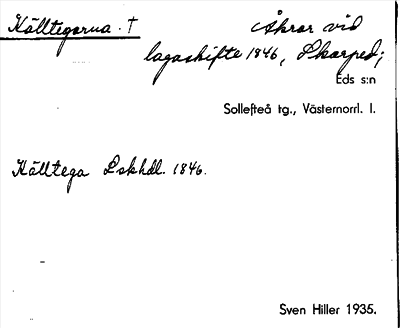 Källtegarna. † Åkrar vid
lagaskifte 1846, Skarped;
Eds s:n
Sollefteå tg., Västernorrl. l.
Källtega Lskhdl. 1846.
Sven Hiller 1935.